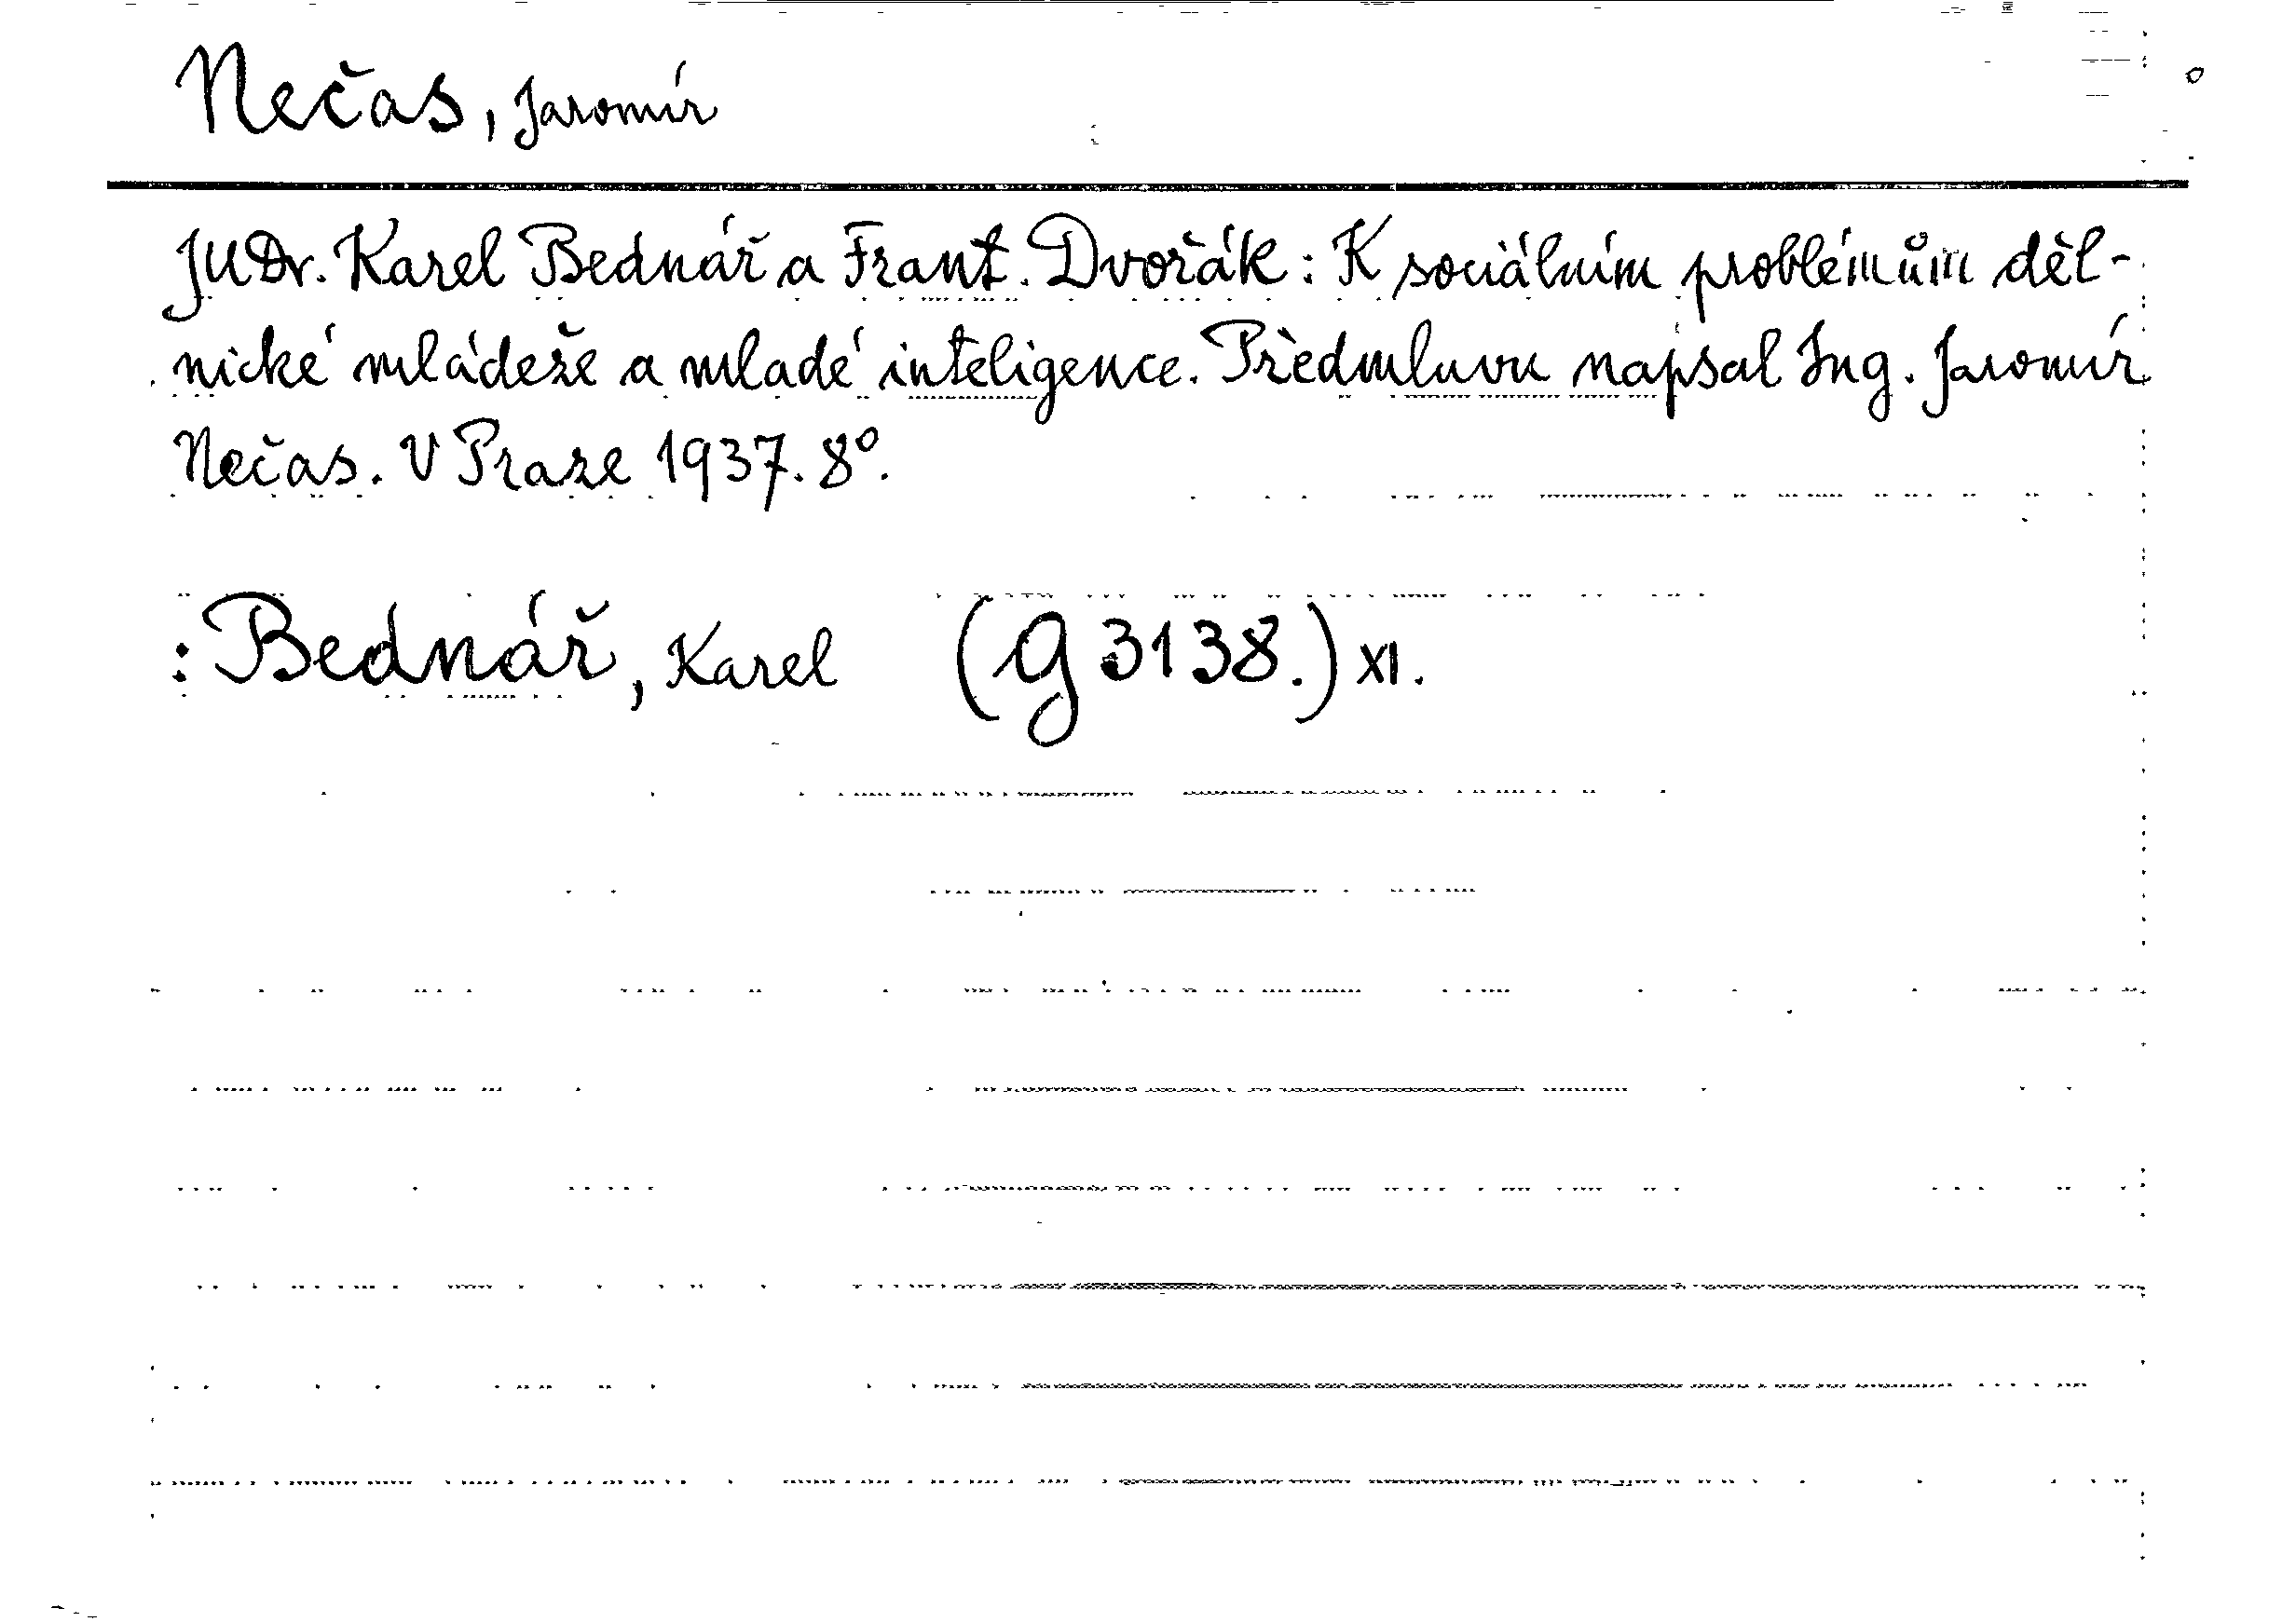 Nečas, Jaromír
JUDr. Karel Bednář a Frant. Dvořák: K sociálním problémům děl-
nické mládeže a mladé inteligence. Předmluvu napsal Ing. Jaromír
Nečas. V Praze 1937. 8°.
: Bednář, Karel (g 3138.) XI.